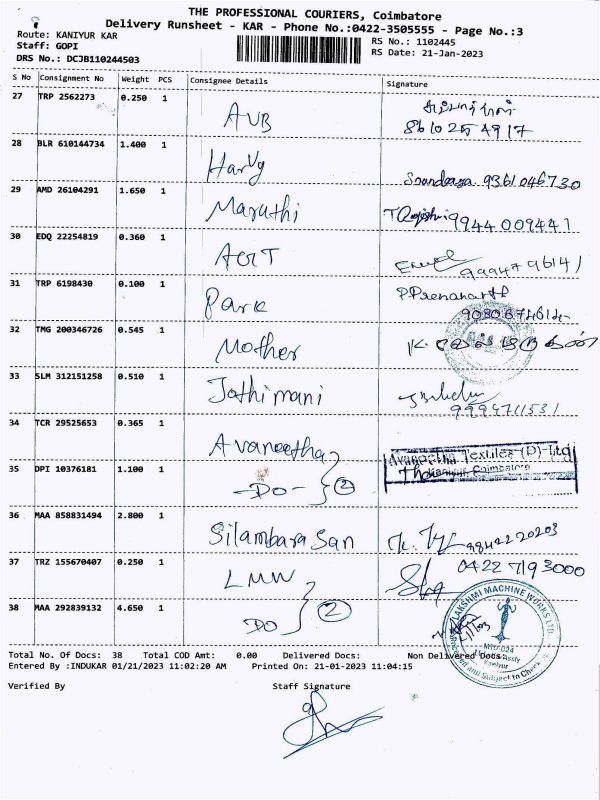 THE PROFESSIONAL COURIERS, Coimbatore
Delivery Runsheet - KAR - Phone No.:0422-3505555 - Page No.:3
Route: KANIYUR KAR
Staff: GOPI
DRS No.: DCJB110244503
RS No.: 1102445
RS Date: 21-Jan-2023
S No Consignment No Weight PCS Consignee Details Signature
27 TRP 2562273 0.250 1 AVB
8610254917
28 BLR 610144734 1.400 1 Harvy 9361046730
29 AMD 26104291 1.650 1 Maruthi 9944009441
30 EDQ 22254819 0.360 1 9994796141
31 TRP 6198430 0.100 1 Park
9080674614
32 TMG 200346726 0.545 1 Mother
33 SLM 312151258 0.510 1 Jothimani
9994711531
34 TCR 29525653 0.365 1 Avaneetha
Avaneetha Textiles (P) Ltd
Coimbatore
35 DPI 10376181 1.100 1 -DO- 2
36 MAA 858831494 2.800 1 Silambara San 9842220203
37 TRZ 155670407 0.250 1 LMW 0422 7193000
38 MAA 292839132 4.650 1 DO 2
LAKSHMI MACHINE WORKS LTD.
Total No. Of Docs: 38 Total COD Amt: 0.00 Delivered Docs: Non Delivered Docs:
Entered By :INDUKAR 01/21/2023 11:02:20 AM Printed On: 21-01-2023 11:04:15
Verified By Staff Signature